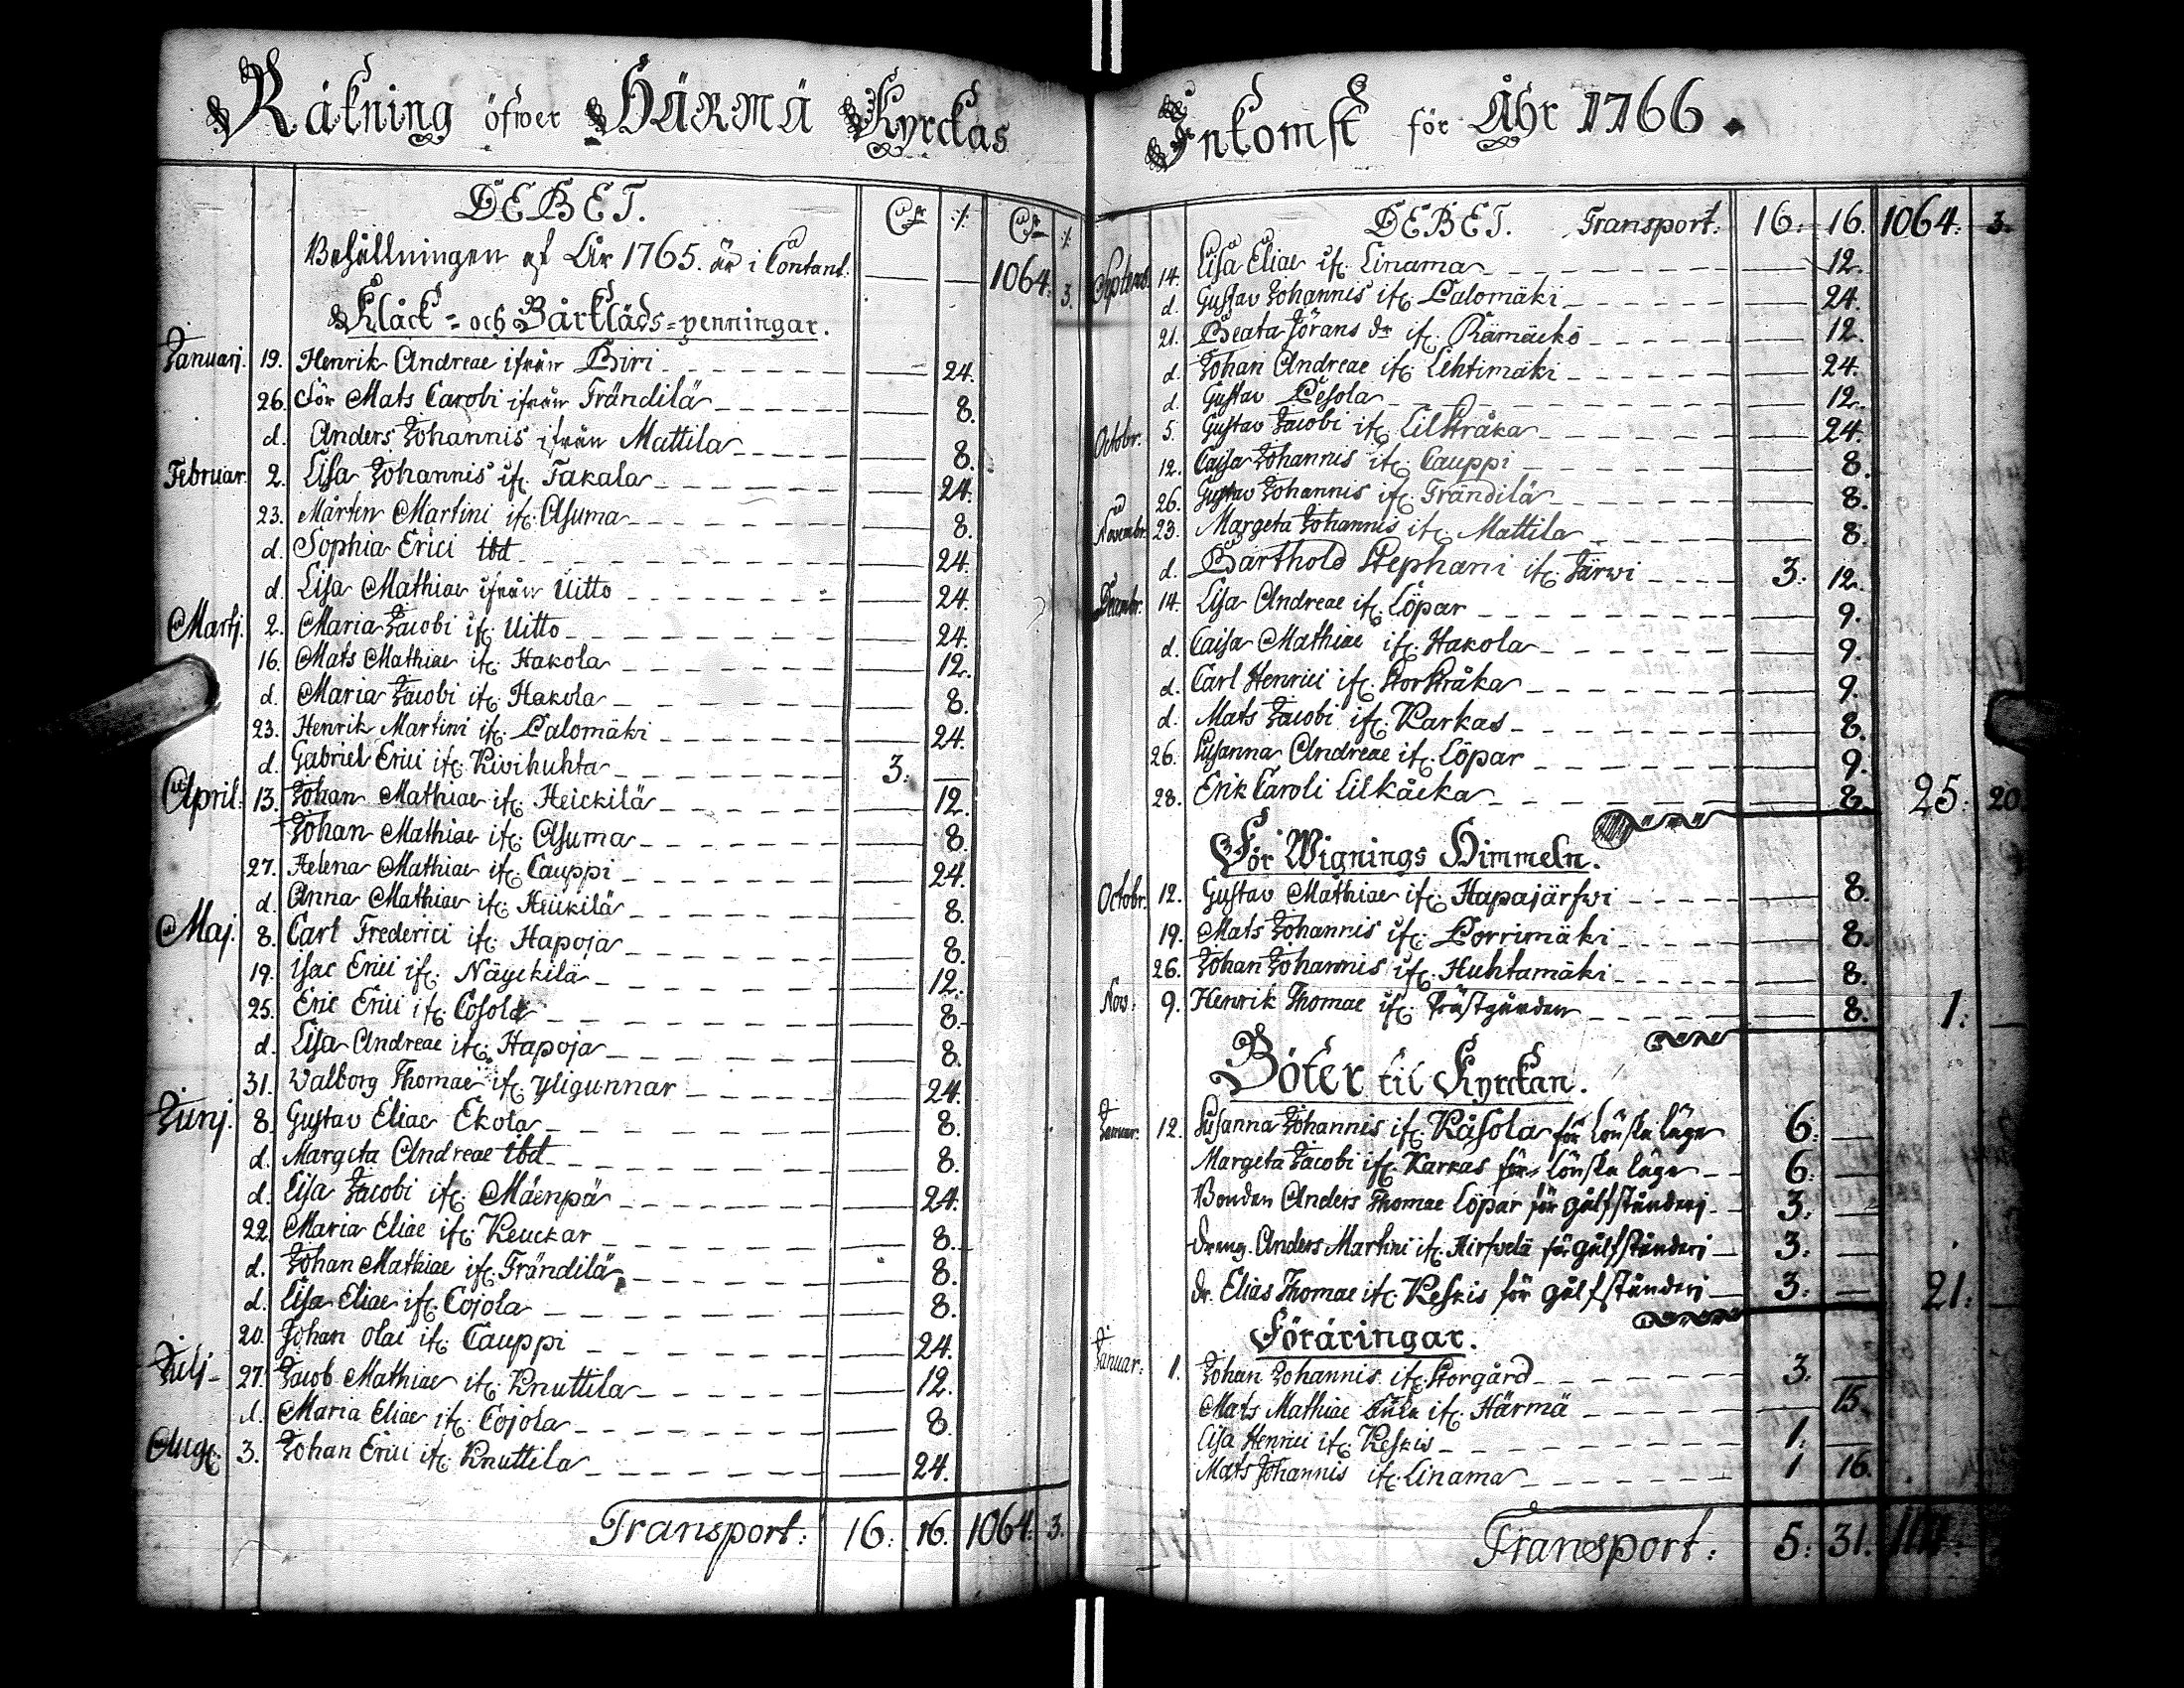 Räkning öfwer HÄRMÄ Kyrckas
DEBET.
Behållningen af Åhr 1765. är i Contant. — — 1064. 3.
Klåck- och Bårkläds-penningar.
Januarj. 19. Henrik Andreae ifrån Biri — 24.
26. för Mats Carobi ifrån Frändilä — 8.
d. Anders Johannis ifrån Mattila — 8.
Februar. 2. Lisa Johannis if. Takala — 24.
23. Mårten Martini if. Asuma — 8.
d. Sophia Erici ibd — 24.
d. Lisa Mathiae ifrån Uitto — 24.
Martj. 2. Maria Jacobi if. Uitto — 24.
16. Mats Mathiae if. Hakola — 12.
d. Maria Jacobi if. Hakola — 8.
23. Henrik Martini if. Palomäki — 24.
d. Gabriel Erici if. Kivihuhta 3. —
April. 13. Johan Mathiae if. Heickilä — 12.
Johan Mathiae if. Asuma — 8.
27. Helena Mathiae if. Cauppi — 24.
d. Anna Mathiae if. Heickilä — 8.
Maj. 8. Carl Frederici if. Hapoja — 8.
19. Isac Erici if. Näyckilä — 12.
25. Eric Erici if. Cosola — 8.
d. Lisa Andreae if. Hapoja — 8.
31. Walborg Thomae if. yligunnar — 24.
Junj. 8. Gustav Eliae Ekola — 8.
d. Margeta Andreae ibd — 8.
d. Lisa Jacobi if. Mäenpä — 24.
22. Maria Eliae if. Keuckar — 8.
d. Johan Mathiae if. Frändilä — 8.
d. Lisa Eliae if. Cojola — 8.
20. Johan Olai if. Cauppi — 24.
Julj 27. Jacob Mathiae if. Knuttila — 12.
d. Maria Eliae if. Cojola — 8.
Aug. 3. Johan Erici if. Knuttila — 24.
Transport: 16. 16. 1064. 3.
Inkomst för Åhr 1766.
DEBET. Transport: 16. 16. 1064. 3.
Septemb. 14. Lisa Eliae if. Linama — 12.
d. Gustav Johannis if. Palomäki — 24.
21. Beata Jörans dr if. Rämäckö — 12.
d. Johan Andreae if. Lehtimäki — 24.
d. Gustav Pesola — 12.
Octobr. 5. Gustav Jacobi if. Lilstråka — 24.
12. Caisa Johannis if. Cauppi — 8.
26. Gustav Johannis if. Frändilä — 8.
Novembr. 23. Margeta Johannis if. Mattila — 8.
d. Barthold Stephani if. Järwi 3. 12.
Decembr. 14. Lisa Andreae if. Löpar — 9.
d. Caisa Mathiae if. Hakola — 9.
d. Carl Henrici if. Storstråka — 9.
d. Mats Jacobi if. Karkas — 8.
26. Susanna Andreae if. Löpar — 9.
28. Erik Caroli Lilkåcka — 8. 25. 20.
För Wignings Himmeln.
Octobr. 12. Gustav Mathiae if. Hapajärfwi — 8.
19. Mats Johannis if. Porrimäki — 8.
26. Johan Johannis if. Huhtamäki — 8.
Nov: 9. Henrik Thomae if. Prästgården — 8. 1. —
Böter til Kyrckan.
Januar. 12. Susanna Johannis if. Kåsola för lönska läge 6. —
Margeta Jacobi if. Karkas för lönska läge 6. —
Bonden Anders Thomae Löpar för gålfstånders 3. —
Dreng. Anders Martini if. Hirfvelä för gålfstånders 3. —
dr. Elias Thomae if. Keskis för gålfstånders 3. — 21. —
Föräringar.
Januar. 1. Johan Johannis if. Storgård 3. —
Mats Mathiae if. Härmä — 15.
Lisa Henrici if. Keskis 1. —
Mats Johannis if. Linama 1 16.
Transport: 5. 31.